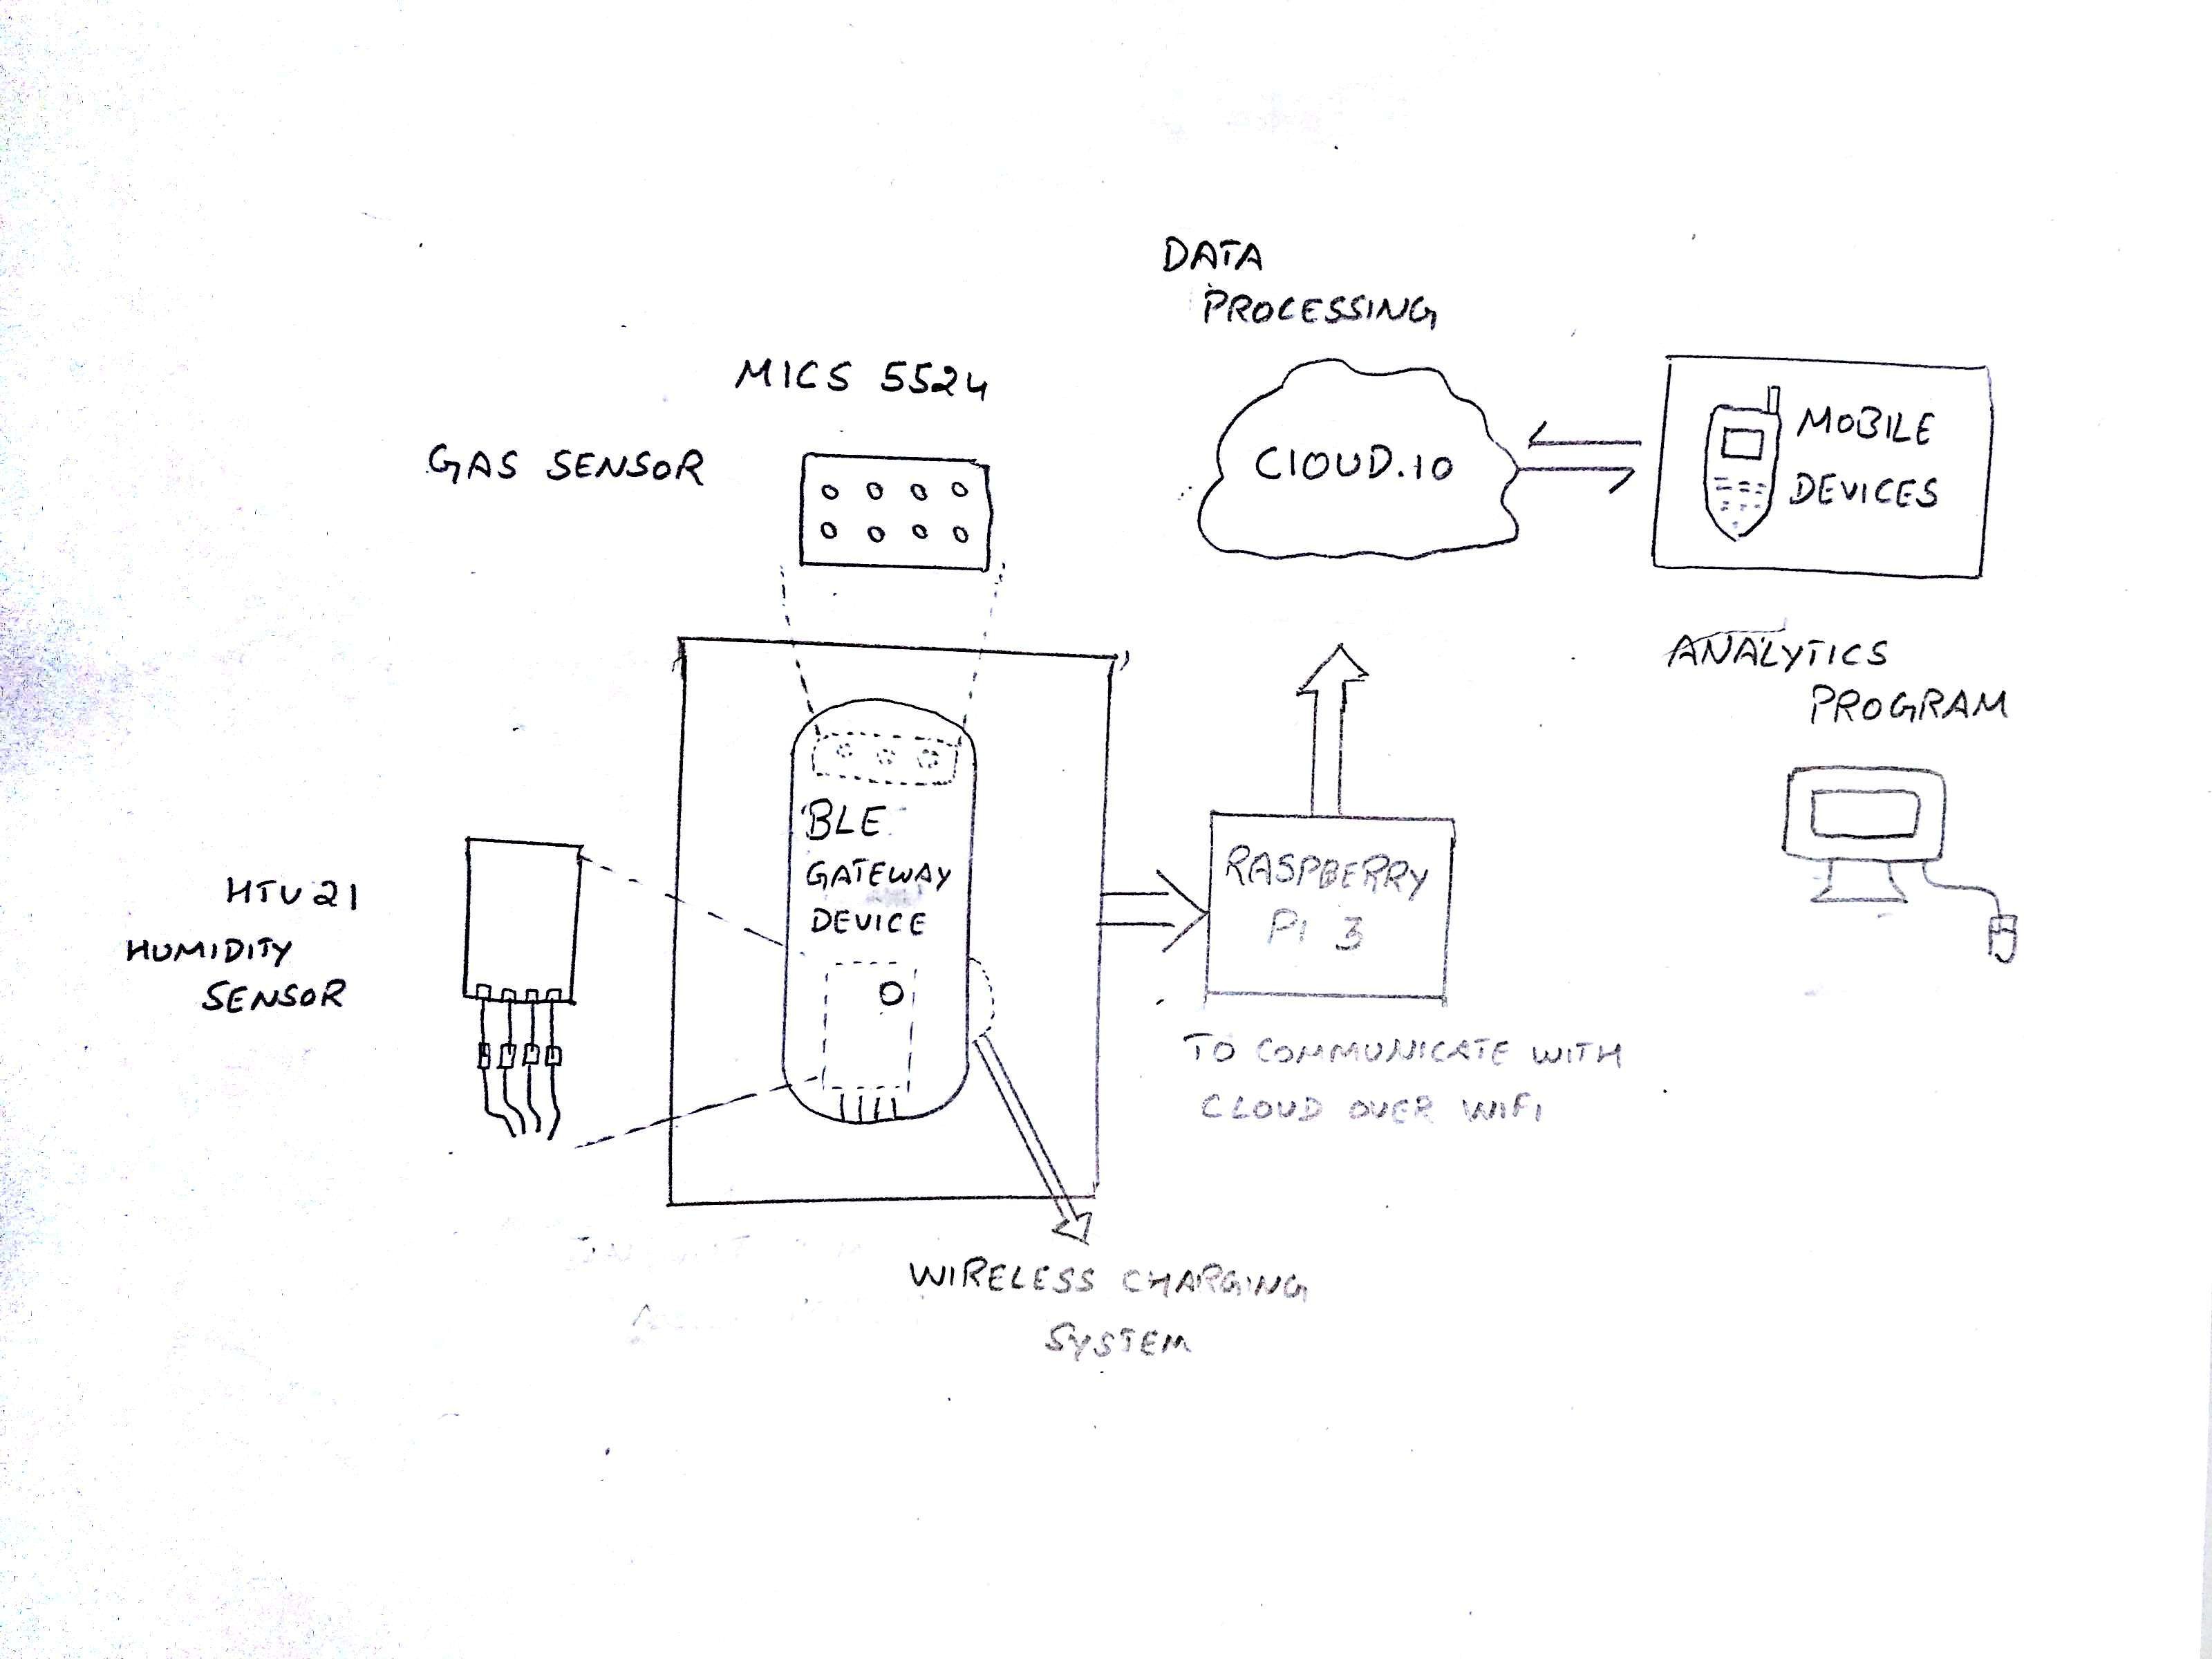 DATA
PROCESSING
MICS 5524
GAS SENSOR
CLOUD.IO
MOBILE
DEVICES
ANALYTICS
PROGRAM
BLE
GATEWAY
DEVICE
HTU21
HUMIDITY
SENSOR
RASPBERRY
PI 3
TO COMMUNICATE WITH
CLOUD OVER WIFI
WIRELESS CHARGING
SYSTEM